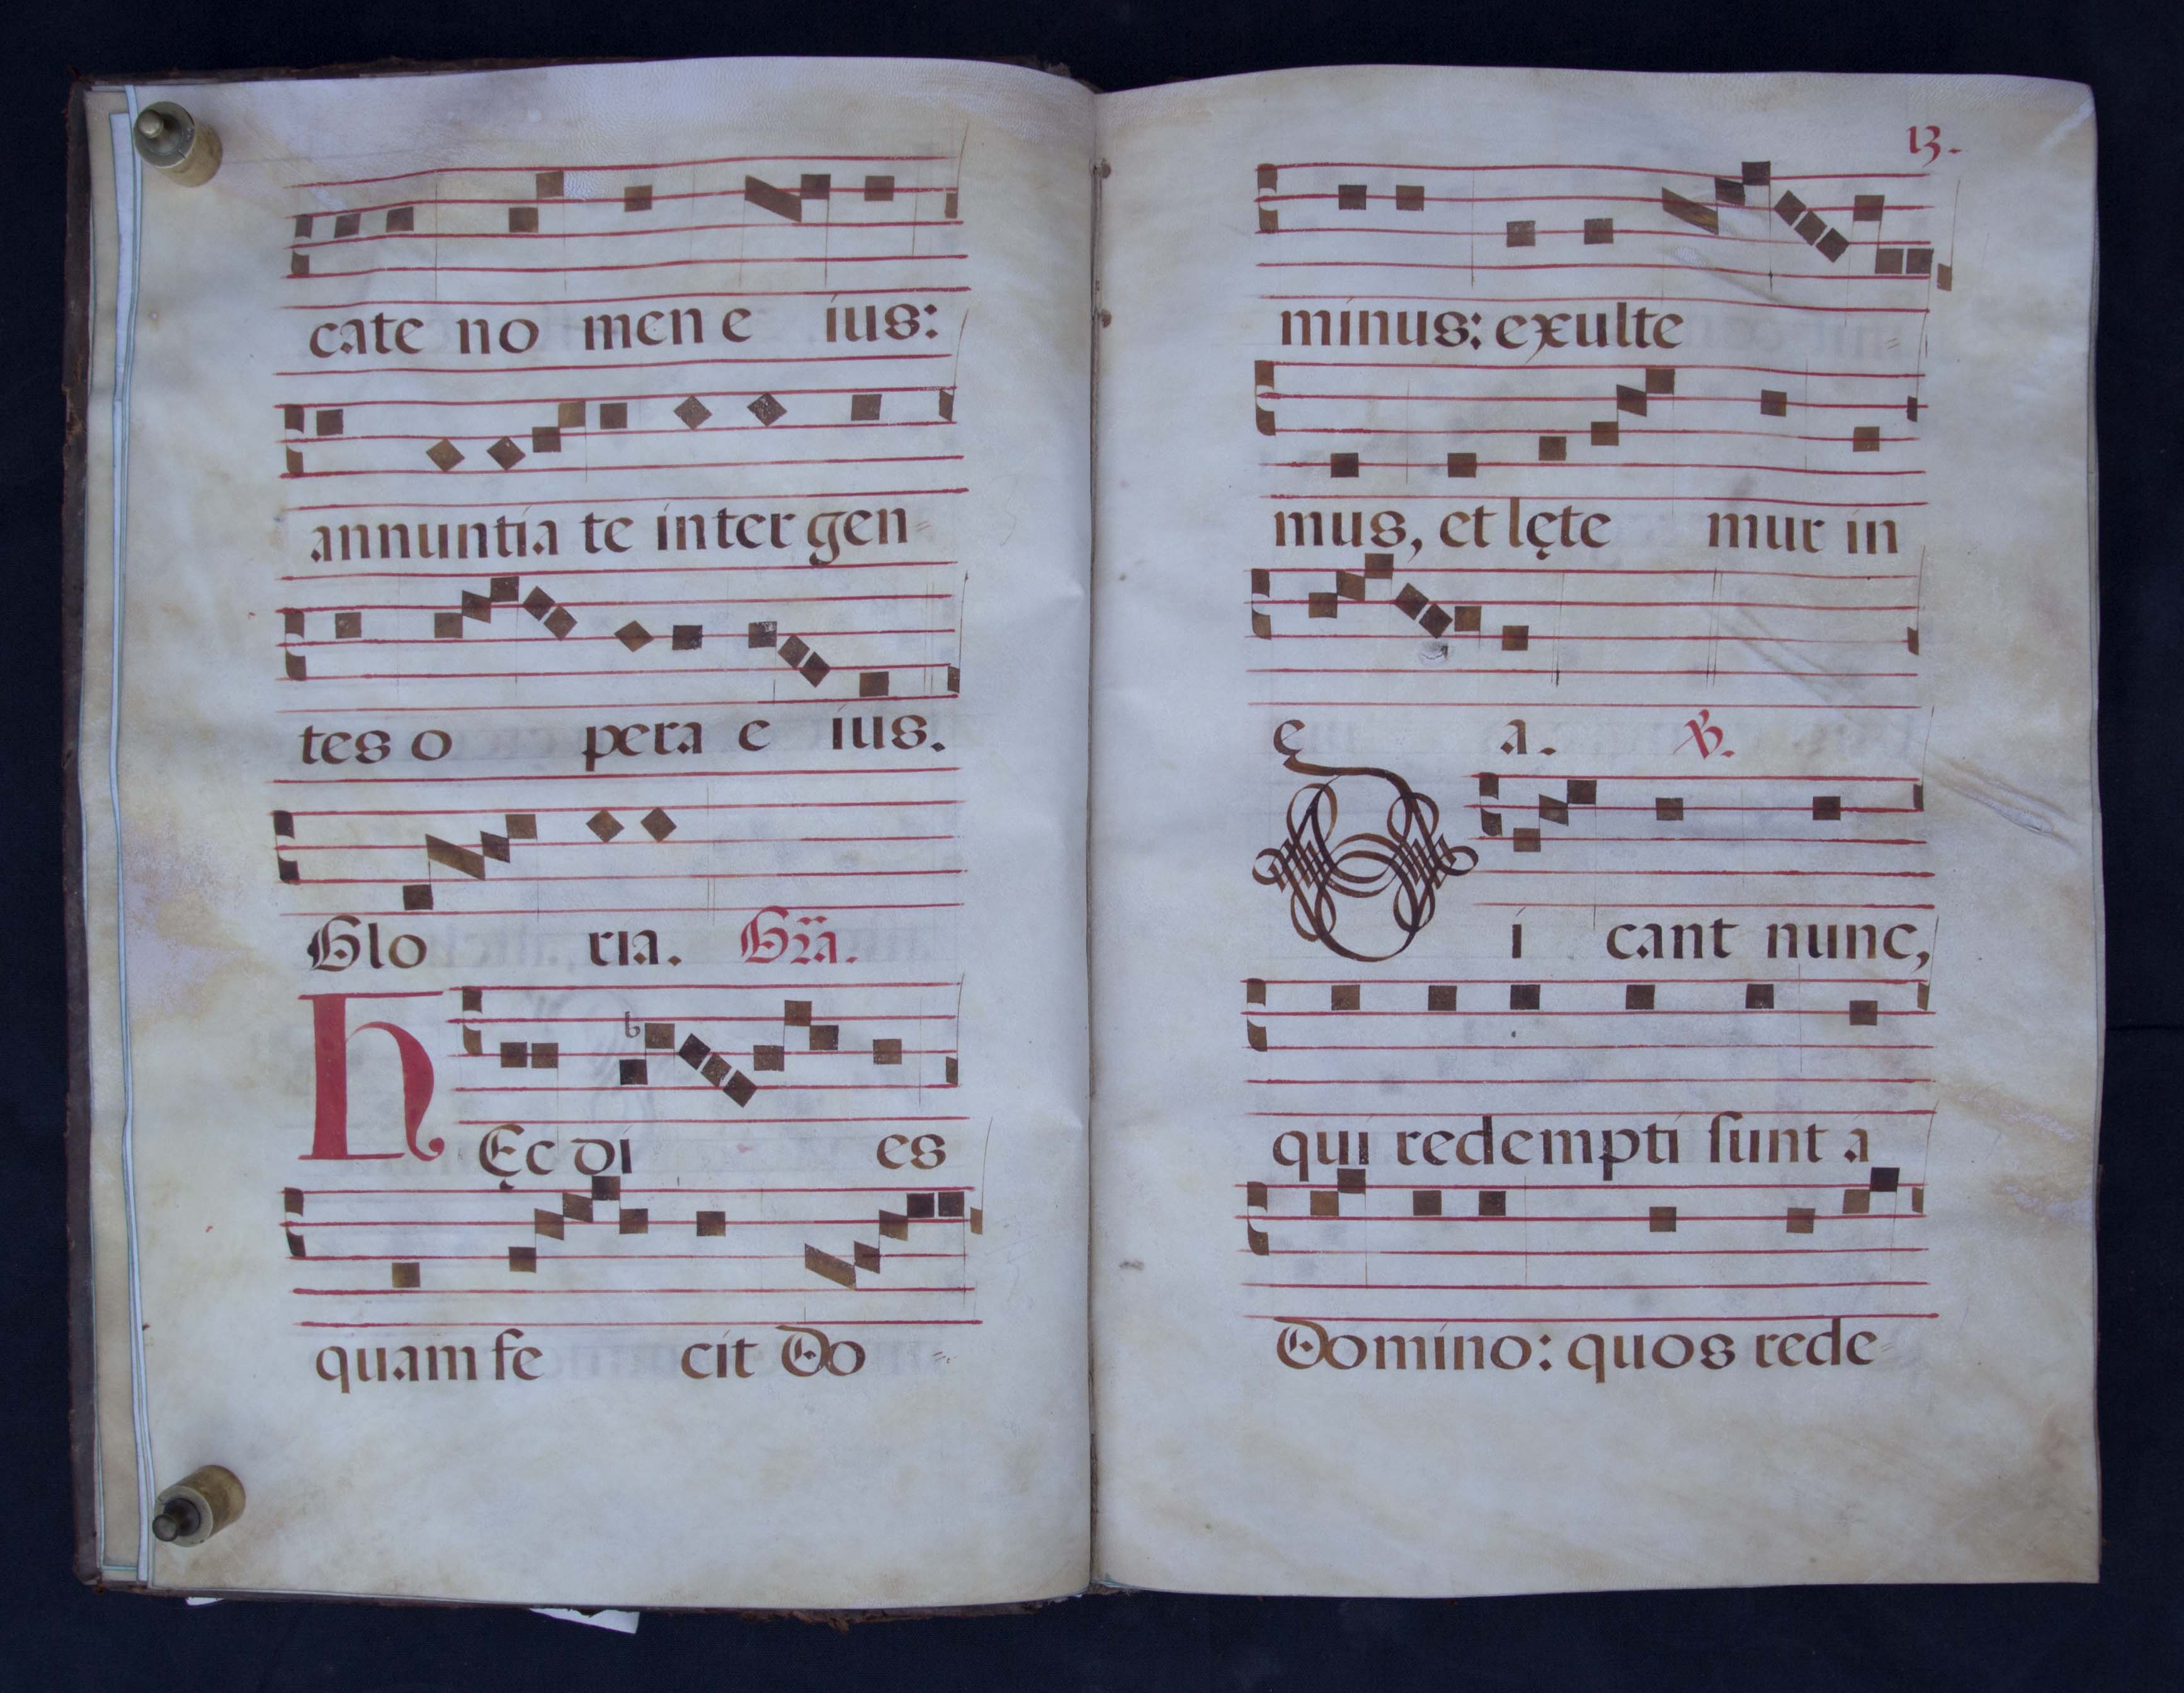 cate no men e ius:
annuntia te inter gen=
tes o pera e ius.
Glo ria. Gra.
hęc di es
quam fe cit Do=
13.
minus: exulte=
mus, et lęte mur in
ę a. ℣.
Di cant nunc,
qui redempti ſunt à
Domino: quos rede=